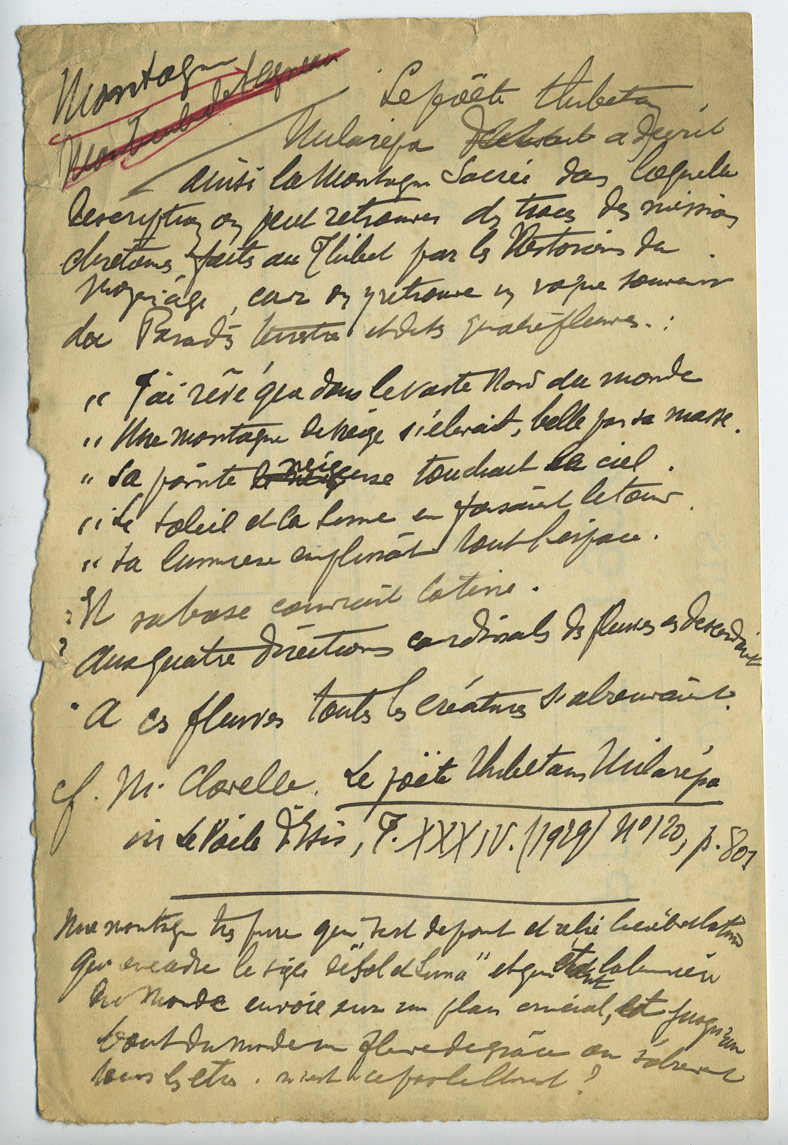 Montagne
Le poëte Thibetain
Milarépa a décrit
ainsi la Montagne Sacrée dans laquelle
description on peut retrouver des traces des missions
chrétiennes faites au Thibet par les Nestoriens du
Moyen âge, car on y retrouve un vague souvenir
du Paradis terrestre et des quatre fleuves. :
" J'ai rêvé que dans le vaste Nord du monde
" Une montagne de neige s'élevait, belle par sa masse.
" Sa pointe neigeuse touchait le ciel.
" Le Soleil et la Lune en faisaient le tour.
" Sa lumière emplissait tout l'espace.
" Et sa base couvrait la terre.
" Aux quatre directions cardinales des fleuves en descendaient
" A ces fleuves toutes les créatures s'abreuvaient.
cf. M. Clavelle. Le poëte Thibetain Milarépa
in Le Voile d'Isis, T. XXXIV. (1929) N° 120, p. 801
Une montagne très pure qui
qui encadre le sigle de "Sol et Luna" et qui la lumière
du Monde envoie sur un plan crucial, et jusqu'au
bout du monde un fleuve de grâce où s'abreuvent
tous les êtres. n'est-ce pas le Christ ?